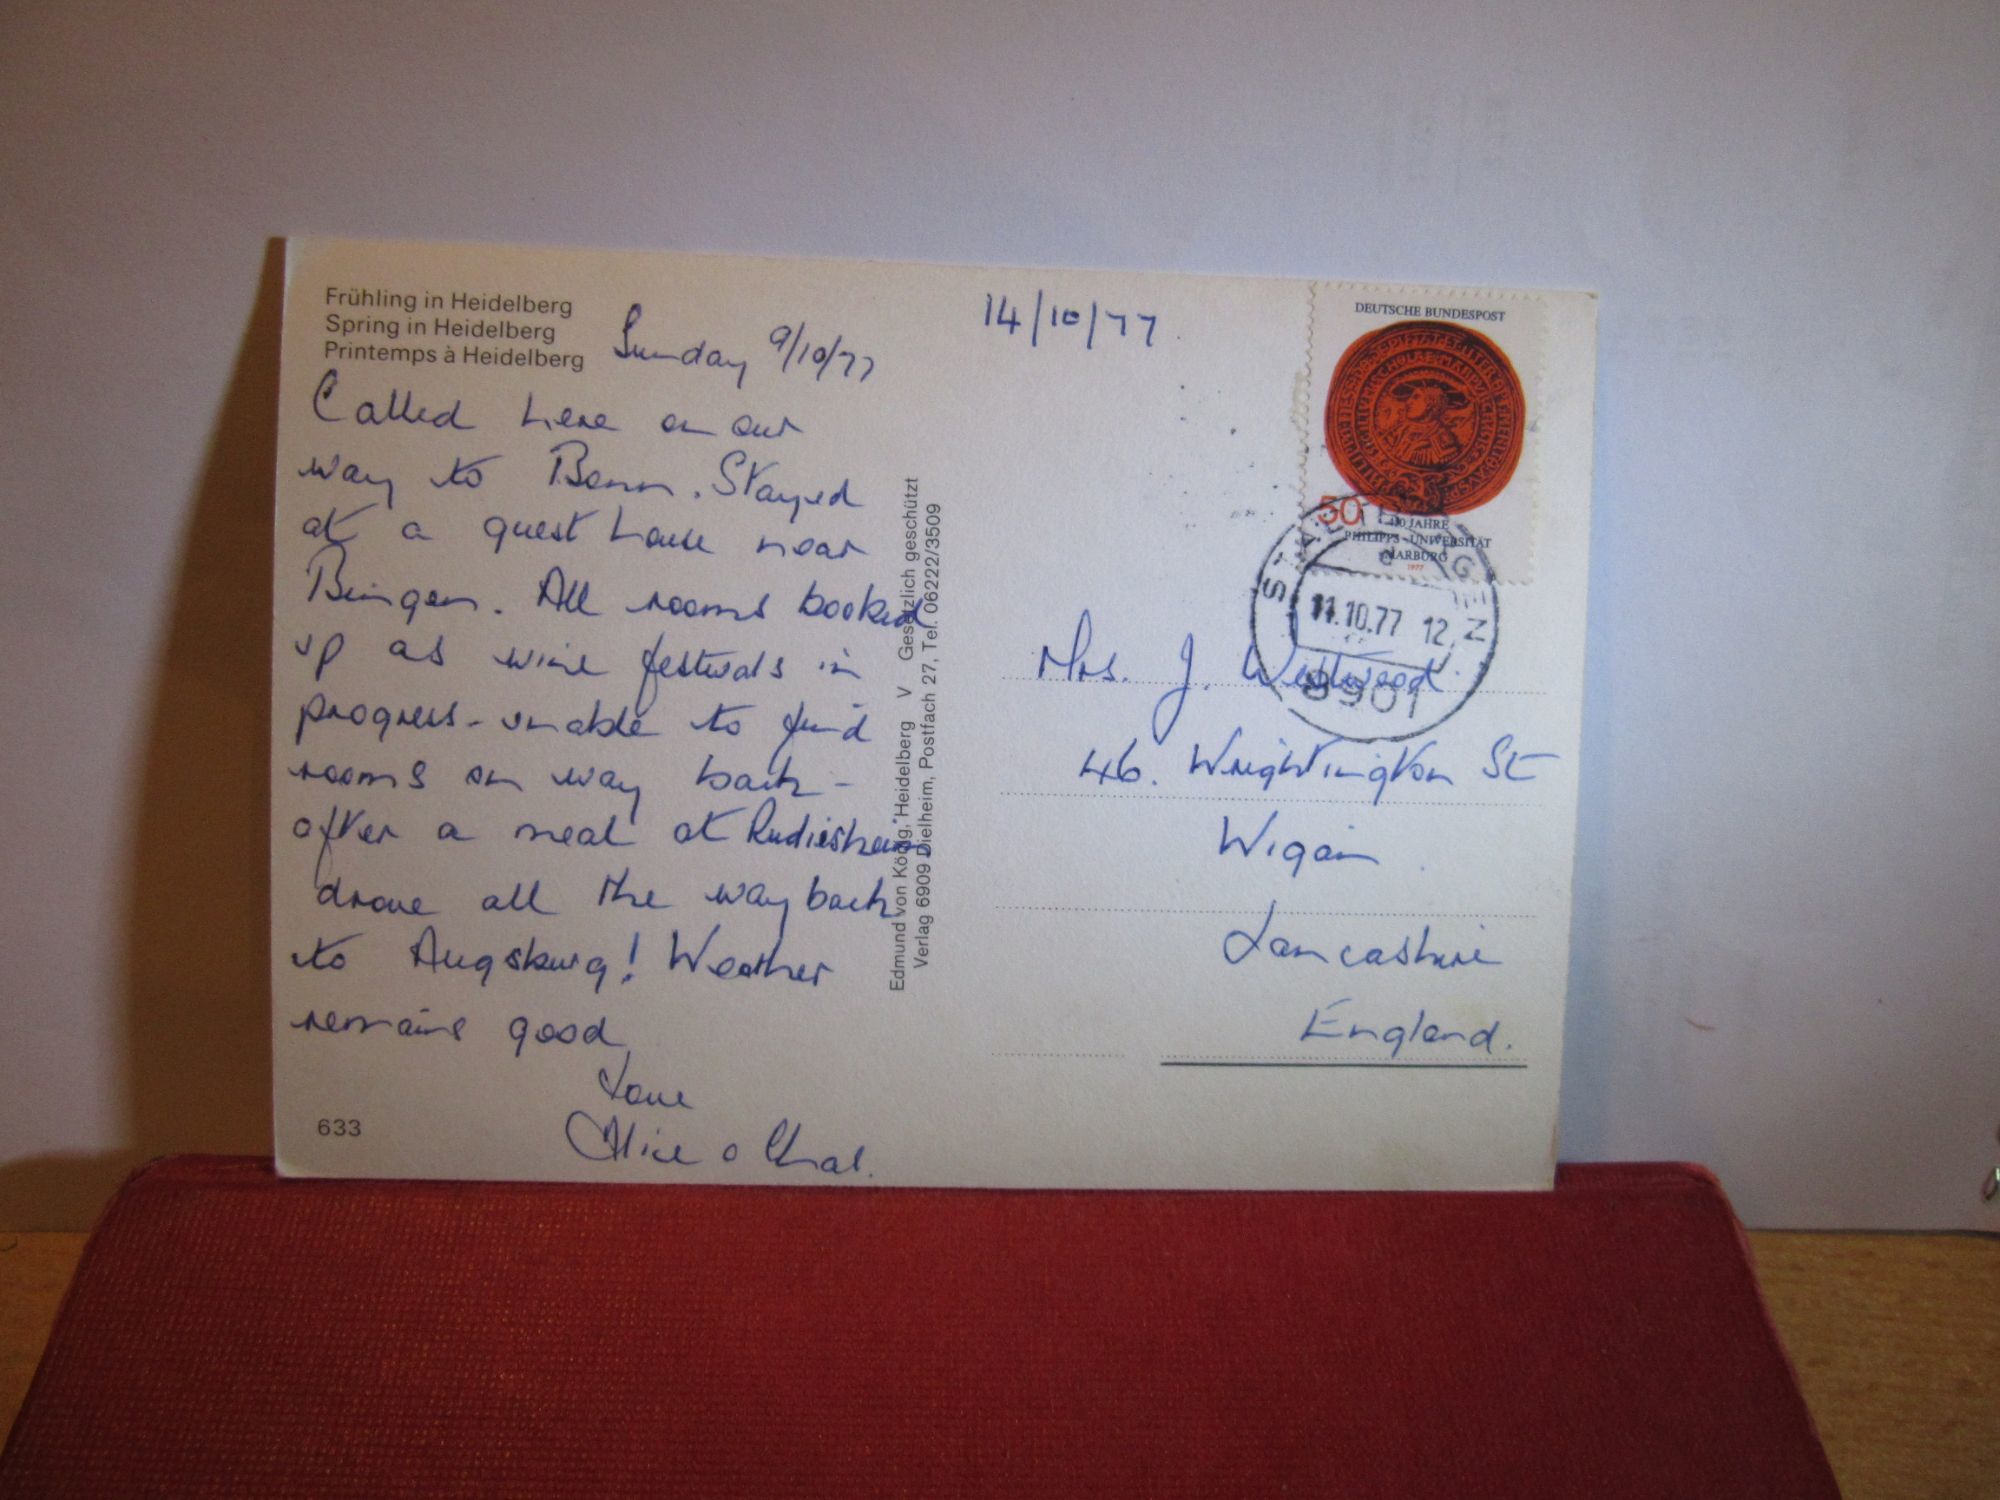 Frühling in Heidelberg
Spring in Heidelberg
Printemps à Heidelberg
Sunday 9/10/77
Called here on our
way to Bonn. Stayed
at a guest house near
Bingen. All rooms booked
up as wine festivals in
progress - unable to find
rooms on way back -
after a meal at Rudiesheim
drove all the way back
to Augsburg! Weather
remains good
Love
Alice & Chas.
633
Edmund von König, Heidelberg V Gesetzlich geschützt
Verlag 6909 Dielheim, Postfach 27, Tel. 06222/3509
14/10/77
DEUTSCHE BUNDESPOST
50
JAHRE
PHILIPPS-UNIVERSITÄT
MARBURG
1977
11.10.77 12
8901
Mrs. J. Westwood
46. Wrightington St
Wigan
Lancashire
England.